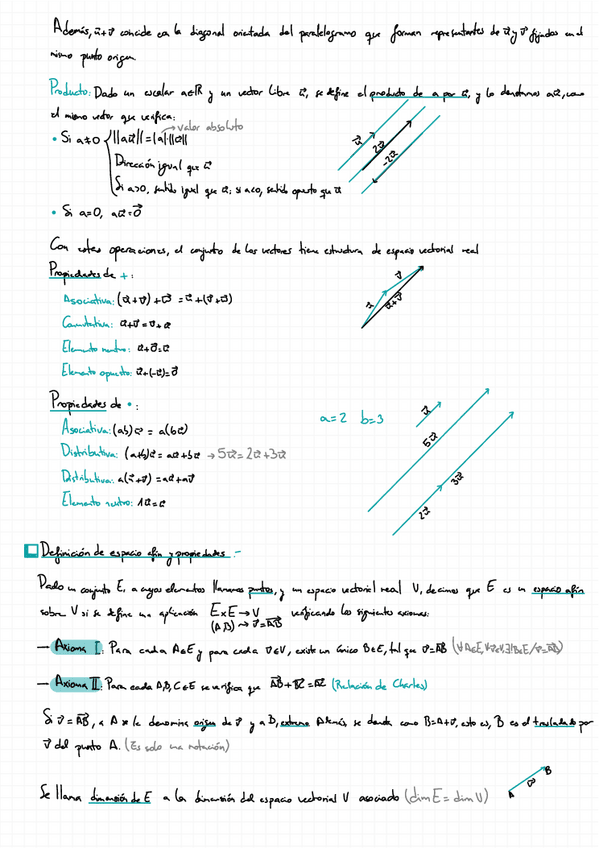 Además, u⃗+v⃗ coincide con la diagonal orientada del paralelogramo que forman representantes de u⃗ y v⃗ fijados en el
mismo punto origen
Producto: Dado un escalar a∈ℝ y un vector libre u⃗, se define el producto de a por u⃗, y lo denotamos au⃗, como
el mismo vector que verifica:
• Si a≠0 { ||au⃗|| = |a|·||u⃗|| → valor absoluto
Dirección igual que u⃗
Si a>0, sentido igual que u⃗; si a<0, sentido opuesto que u⃗
u⃗
2u⃗
-2u⃗
• Si a=0, au⃗=0⃗
Con estas operaciones, el conjunto de los vectores tiene estructura de espacio vectorial real
Propiedades de +:
Asociativa: (u⃗+v⃗)+w⃗ = u⃗+(v⃗+w⃗)
Conmutativa: u⃗+v⃗=v⃗+u⃗
Elemento neutro: u⃗+0⃗=u⃗
Elemento opuesto: u⃗+(-u⃗)=0⃗
u⃗
v⃗
u⃗+v⃗
Propiedades de •:
Asociativa: (ab)u⃗ = a(bu⃗)
Distributiva: (a+b)u⃗ = au⃗+bu⃗ → 5u⃗=2u⃗+3u⃗
Distributiva: a(u⃗+v⃗)=au⃗+av⃗
Elemento neutro: 1u⃗=u⃗
a=2 b=3
u⃗
5u⃗
2u⃗
3u⃗
Definición de espacio afín y propiedades.-
Dado un conjunto E, a cuyos elementos llamamos puntos, y un espacio vectorial real V, decimos que E es un espacio afín
sobre V si se define una aplicación E×E→V verificando los siguientes axiomas:
(A,B)→v⃗=AB⃗
— Axioma I: Para cada A∈E y para cada v⃗∈V, existe un único B∈E, tal que v⃗=AB⃗ (∀A∈E, ∀v⃗∈V, ∃!B∈E/v⃗=AB⃗)
— Axioma II: Para cada A,B,C∈E se verifica que AB⃗+BC⃗=AC⃗ (Relación de Charles)
Si v⃗=AB⃗, a A se le denomina origen de v⃗ y a B, extremo. Además, se denota como B=A+v⃗, esto es, B es el trasladado por
v⃗ del punto A. (Es solo una notación)
Se llama dimensión de E a la dimensión del espacio vectorial V asociado (dim E = dim V)
A
v⃗
B